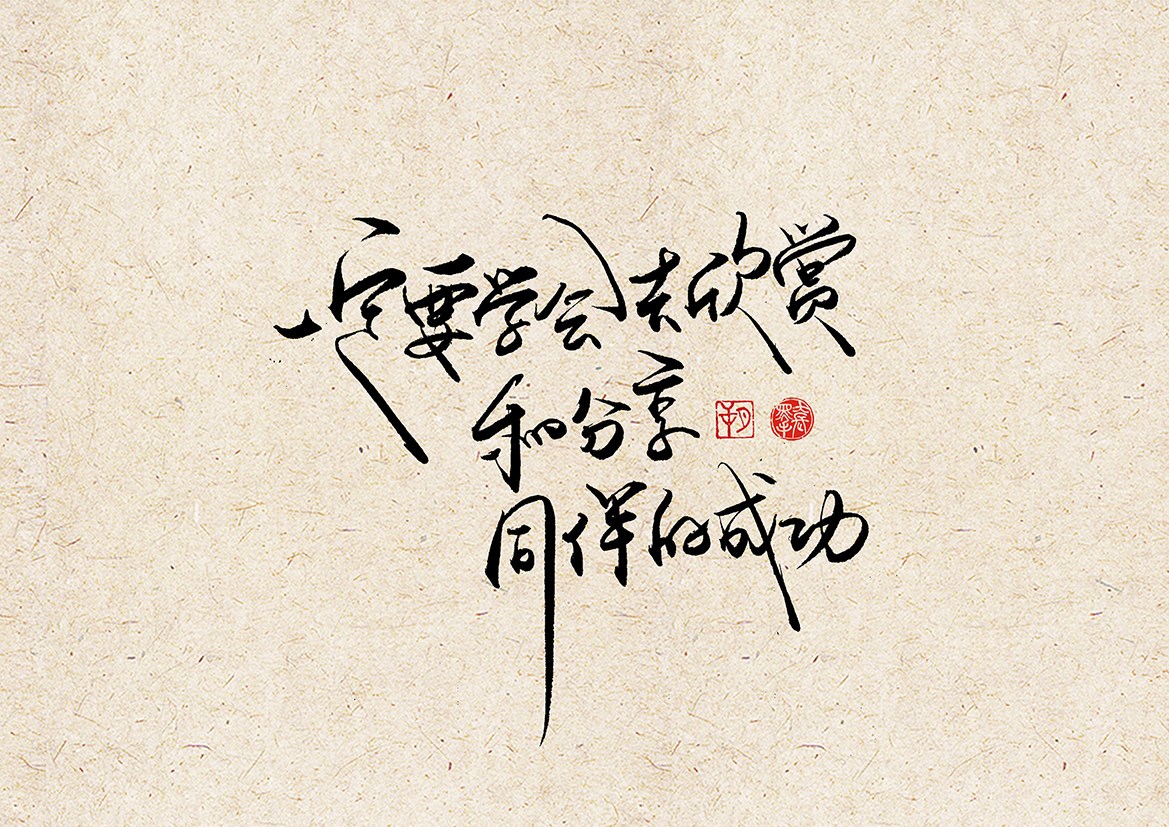 一定要学会去欣赏
和分享
同伴的成功